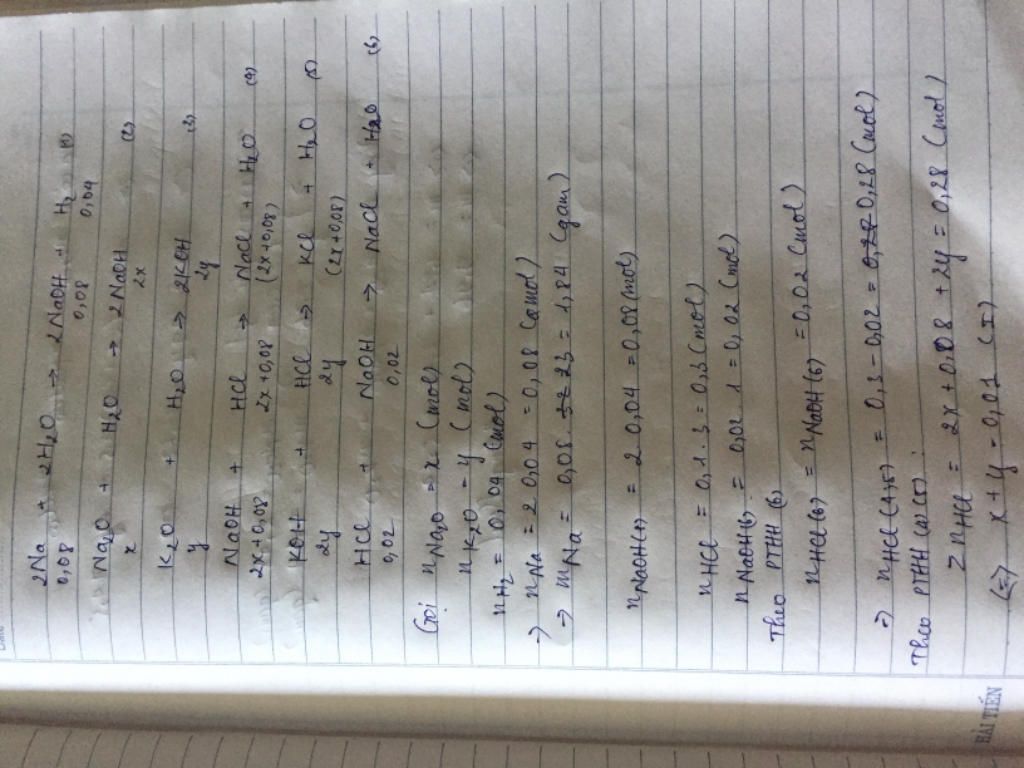 2Na + 2H₂O → 2NaOH + H₂ (1)
0,08 0,08 0,04
Na₂O + H₂O → 2NaOH (2)
x 2x
K₂O + H₂O → 2KOH (3)
y 2y
NaOH + HCl → NaCl + H₂O (4)
2x+0,08 2x+0,08 (2x+0,08)
KOH + HCl → KCl + H₂O (5)
2y 2y (2x+0,08)
HCl + NaOH → NaCl + H₂O (6)
0,02 0,02
Gọi nNa₂O = x (mol)
nK₂O = y (mol)
nH₂ = 0,04 (mol)
→ nNa = 2.0,04 = 0,08 (mol)
→ mNa = 0,08. 23 = 1,84 (gam)
nNaOH(1) = 2.0,04 = 0,08 (mol)
nHCl = 0,1 . 3 = 0,3 (mol)
nNaOH(6) = 0,02 . 1 = 0,02 (mol)
Theo PTHH (6)
nHCl(6) = nNaOH(6) = 0,02 (mol)
→ nHCl(4,5) = 0,3 - 0,02 = 0,28 (mol)
Theo PTHH (4) (5):
Σ nHCl = 2x + 0,08 + 2y = 0,28 (mol)
(=) x + y = 0,01 (I)
HẢI TIẾN